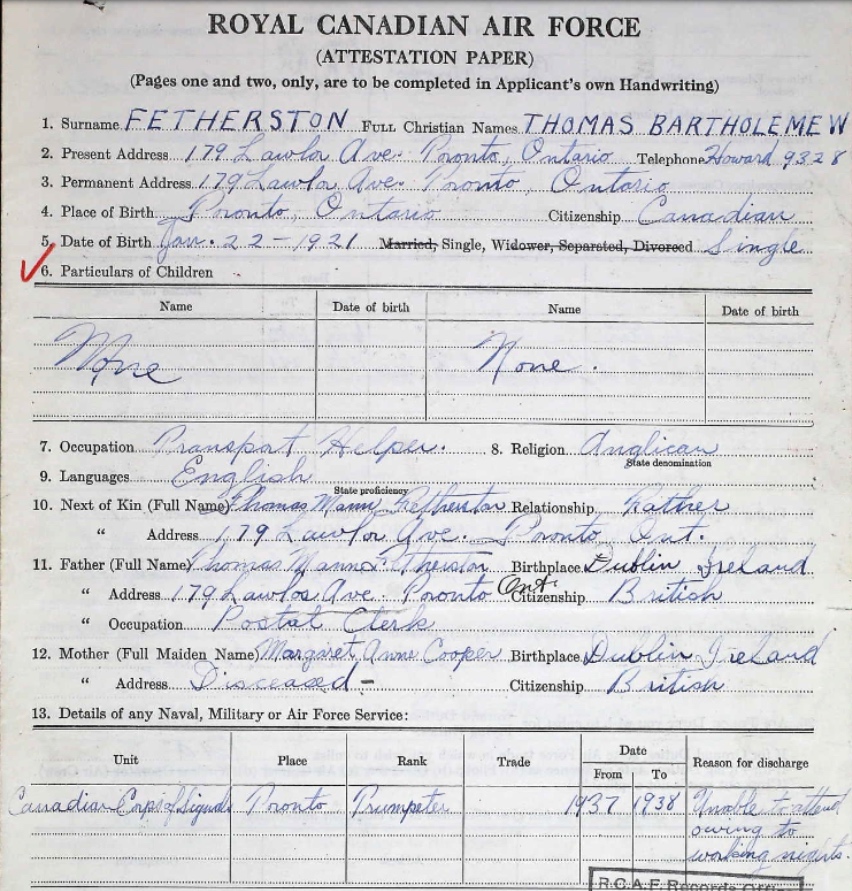 ROYAL CANADIAN AIR FORCE
(ATTESTATION PAPER)
(Pages one and two, only, are to be completed in Applicant's own Handwriting)
1. Surname FETHERSTON FULL Christian Names THOMAS BARTHOLEMEW
2. Present Address 179 Lawlor Ave. Toronto, Ontario Telephone Howard 9328
3. Permanent Address 179 Lawlor Ave. Toronto, Ontario
4. Place of Birth Toronto, Ontario Citizenship Canadian
5. Date of Birth Jan. 22 - 1921 Married, Single, Widower, Separated, Divorced Single
6. Particulars of Children
Name Date of birth Name Date of birth
None None.
7. Occupation Transport Helper. 8. Religion Anglican
State denomination
9. Languages English
State proficiency
10. Next of Kin (Full Name) Thomas Mann Fetherston Relationship Father
" Address 179 Lawlor Ave. Toronto Ont.
11. Father (Full Name) Thomas Mann Birthplace Dublin Ireland
" Address 179 Lawlor Ave. Toronto Ont. Citizenship British
" Occupation Postal Clerk
12. Mother (Full Maiden Name) Margaret Anne Cooper Birthplace Dublin Ireland
" Address Disceased - Citizenship British
13. Details of any Naval, Military or Air Force Service:
Unit Place Rank Trade Date Reason for discharge
From To
Canadian Corps of Signals Toronto Trumpeter 1937 1938 Unable to attend
owing to
working nights.
R.C.A.F. Records